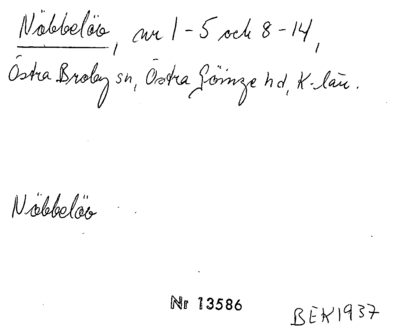 Nöbbelöv, nr 1-5 och 8-14,
Östra Broby sn, Östra Göinge hd, K-län.
Nöbbelöv
Nr 13586
BEK1937